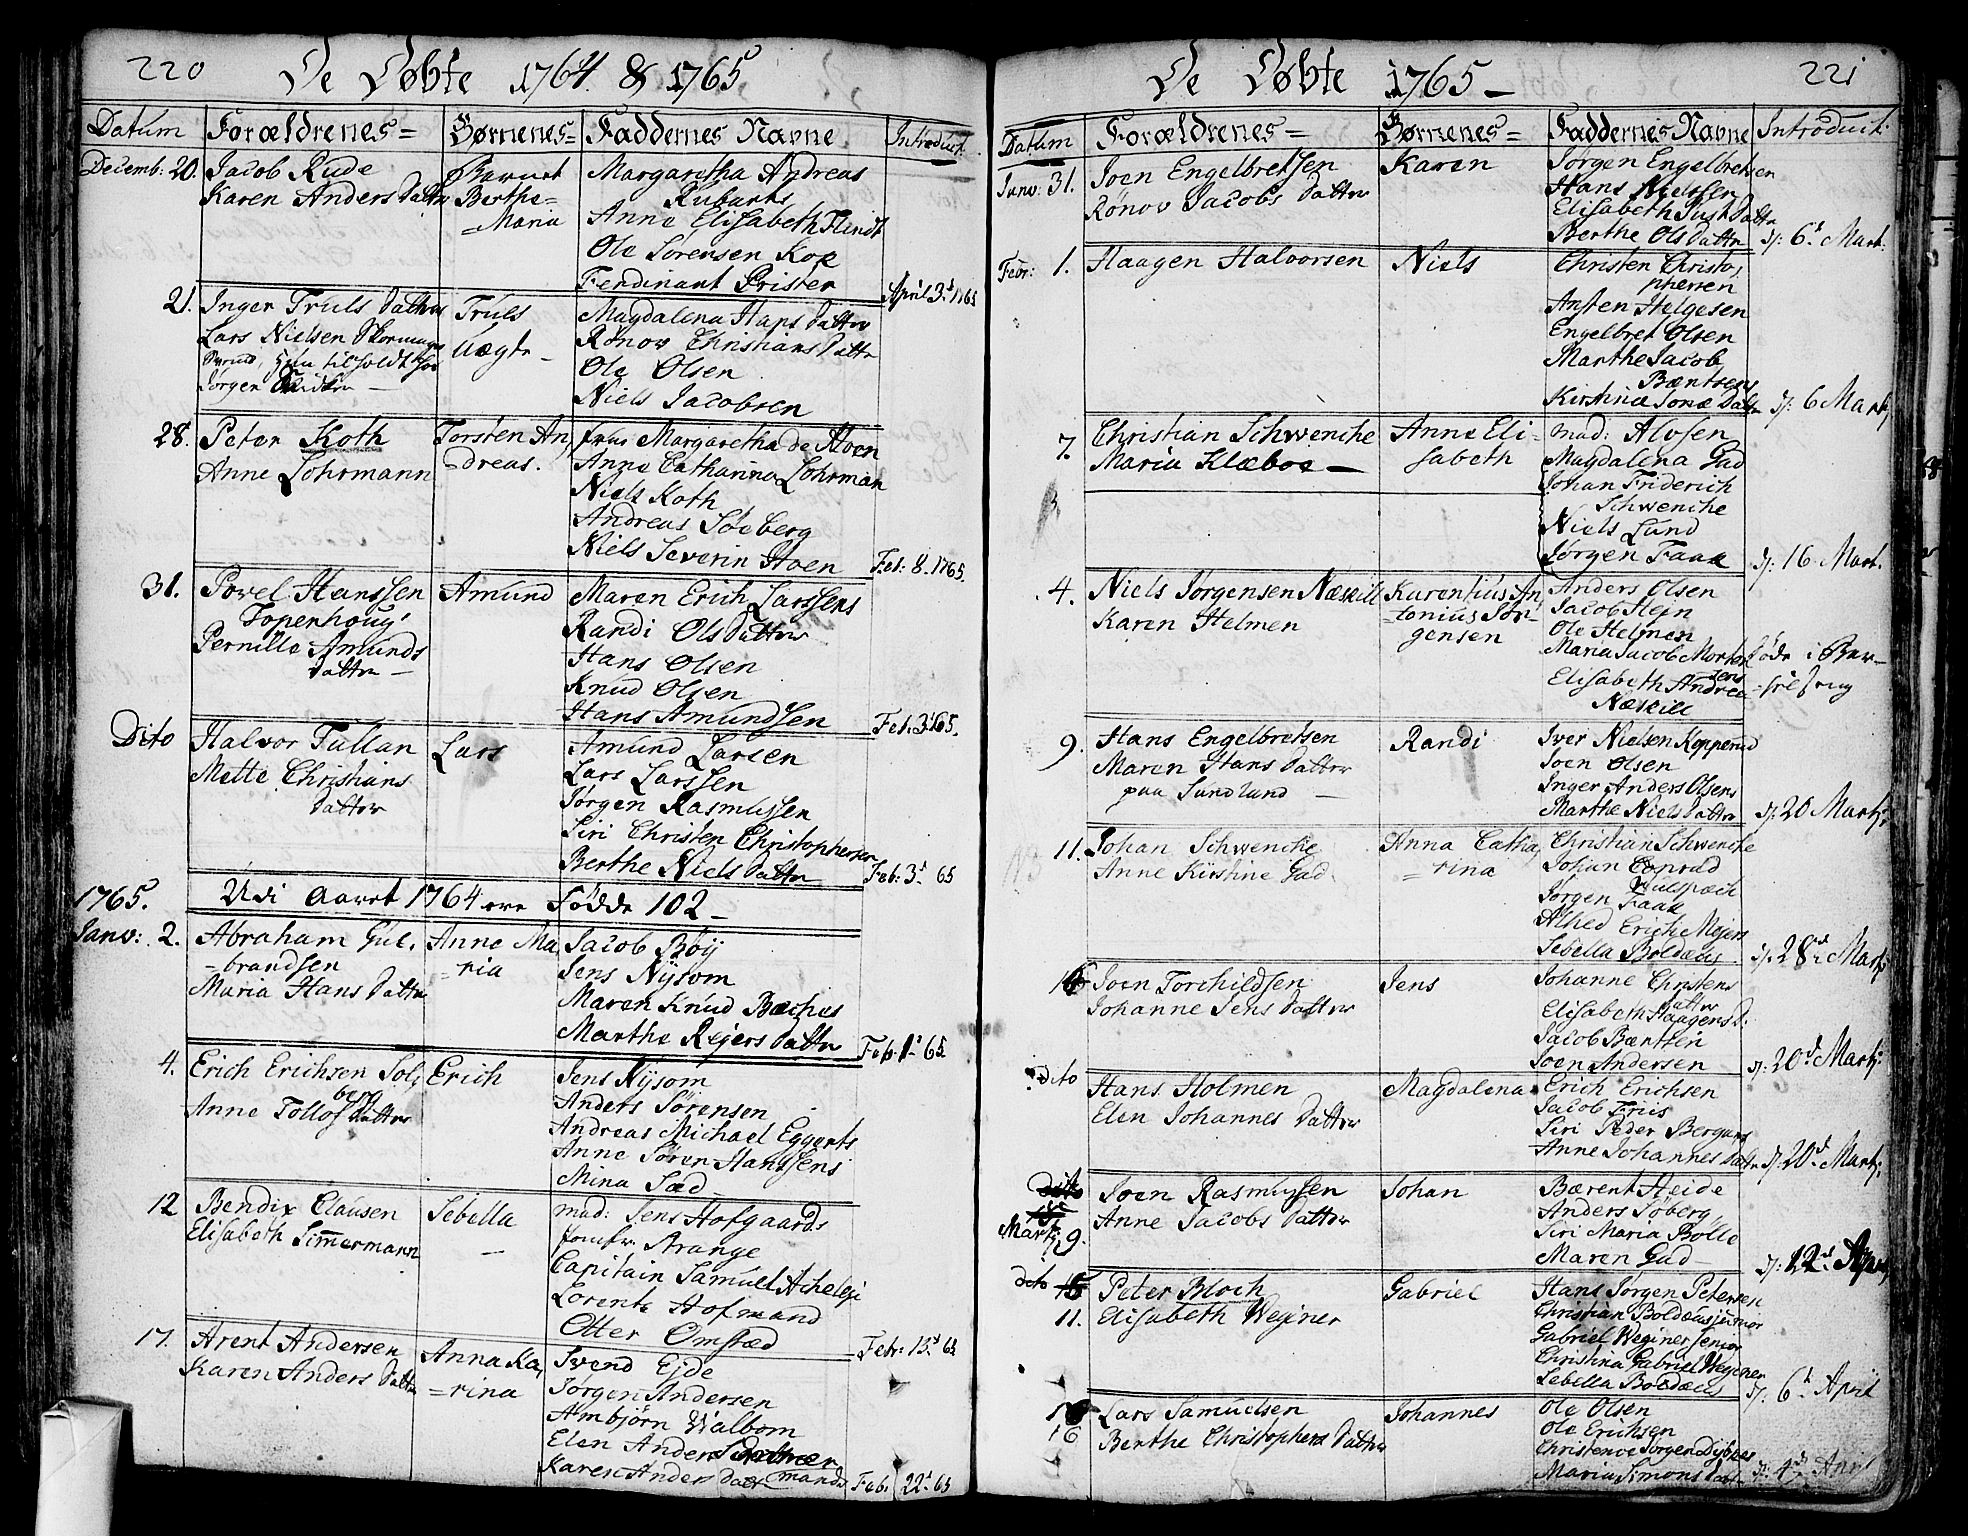 220 De Døbte 1764. & 1765
Datum Forældrenes= Børnenes= Faddernes Navne Introduct.
Decemb: 20. Jacob Rude
Karen Anders Datter
Berthe=
=Maria
Margaretha Andreas
Rubarts
Anne Elisabeth Flindt
Ole Sørensen Koe
Ferdinant Prister
April 3. 1765
21. Inger Truls Datter
Lars Nielsen
Jørgen
Truls
Uægte
Magdalena Hans Datter
Rønov Christians Datter
Ole Olsen
Niels Jacobsen
28. Peter Koth
Anne Lohrmann
Torsten An,
=dreas.
frue Margaretha de Hoen
Anne Catharina Lohrman
Niels Koth
Andreas Søeberg
Niels Severin Hoen
Feb: 8. 1765.
31. Povel Hanssen
Topenhoug
Pernille Amunds
Datter
Amund
Maren Erich Larssens
Randi Ols Datter
Hans Olsen
Knud Olsen
Hans Amundsen
Feb: 3. 65.
Dito Halvor Tullan
Mette Christians
Datter
Lars
Amund Larsen
Lars Larssen
Jørgen Rasmussen
Siri Christen Christophersen
Berthe Niels Datter
Feb: 3. 65
Udi Aaret 1764 ere Fødde 102
1765.
Janv: 2. Abraham Gul,
=brandsen
Maria Hans Datter
Anne Ma,
=ria
Jacob Bøij
Jens Nysom
Maren Knud Bæches
Marthe Rejers Datter
Feb. 1. 65
4. Erich Erichsen Sol,
berg
Anne Tollofs Datter
Erich
Jens Nysom
Anders Sørensen
Andreas Michael Eggerts
Anne Søren Hanssens
Mina Sæd
12 Bendix Clausen
Elisabeth Simmermann
Sebella
mad: Jens Hofgaards
Jomfr. Arange
Capitain Samuel Acheleji
Lorentz Hofmand
Otter Omsted
Febr: 15. 65
17. Arent Andersen
Karen Anders Datter
Anna Ka,
=rina
Svend Ejde
Jørgen Andersen
Ambjörn Walbom
Elen Anders
Karen Anders Datr mands
Feb. 22. 65
De Døbte 1765 221
Datum Forældrenes= Børnenes= Faddernes Navne Introduct:
Janv: 31. Joen Engelbretsen
Rønov Jacobs Datter
Karen
Jørgen Engelbretsen
Hans Nielssen
Elisabeth Just Datter
Berthe Ols Datter
d: 6. Mart.
Febr: 1. Haagen Halvorsen
Niels
Christen Christo,
phersen
Ansten Helgesen
Engelbret Olsen
Marthe Jacob
Bæntsens
Kirstine Datter
d: 6 Martj
7. Christian Schwenche
Maria Klæboe
Anne Eli-
sabeth
mad: Alvsen
Magdalena Gad
Johan Friderich
Schwenche
Niels Lund
Jørgen Faae
d: 16 Mart.
4. Niels Jørgensen Næskill
Karen Helmen
Karentius An
=tonius Jør-
gensen
Anders Olsen
Jacob
Ole Helmen
Maria Jacob Morten
sens
Elisabeth Andrea
Næskill
døde i
9. Hans Engelbretsen
Maren Hans Datter
paa Sundlund
Randi
Iver Nielsen Kopperud
Joen Olsen
Inger Anders Olsens
Marthe Niels Datter
d: 20 Martj:
11. Johan Schwenche
Anne Kirstine Gad
Anna Catha,
=rina
Christian Schwenche
Johan Conrad
Jørgen Faae
Alhed Erich Mejers
Sebella Boldæus
d: 28. Martj:
Joen Torchildsen
Johanne Jens Datter
Jens
Johanne Christens
Datter
Elisabeth Haagens D.
Jacob Bæntsen
Joen Andersen
d: 20. Martj:
Dito
Hans Holmen
Elen Johannes Datter
Magdalena
Erich Erichsen
Jacob Friis
Siri Peder Bergers
Anne Johannes Datter
d: 20. Martj:
Dito
Martj 9.
Joen Rasmussen
Anne Jacobs Datter
Johan
Bærent Heide
Anders Søberg
Siri Maria Bolle
Maren Gad
d: 12. April
dito
11.
Peter Bloch
Elisabeth Weginer
Gabriel
Hans Jørgen Petersen
Christian Boldæus junior
Gabriel Weginer senior
Christina Gabriel Weginer
Sebella Boldæus
d. 6. April
16
Lars Samuelsen
Berthe Christophers Datter
Johannes
Ole Olsen
Ole Erichsen
Christence Jørgen
Maria Simons Datr